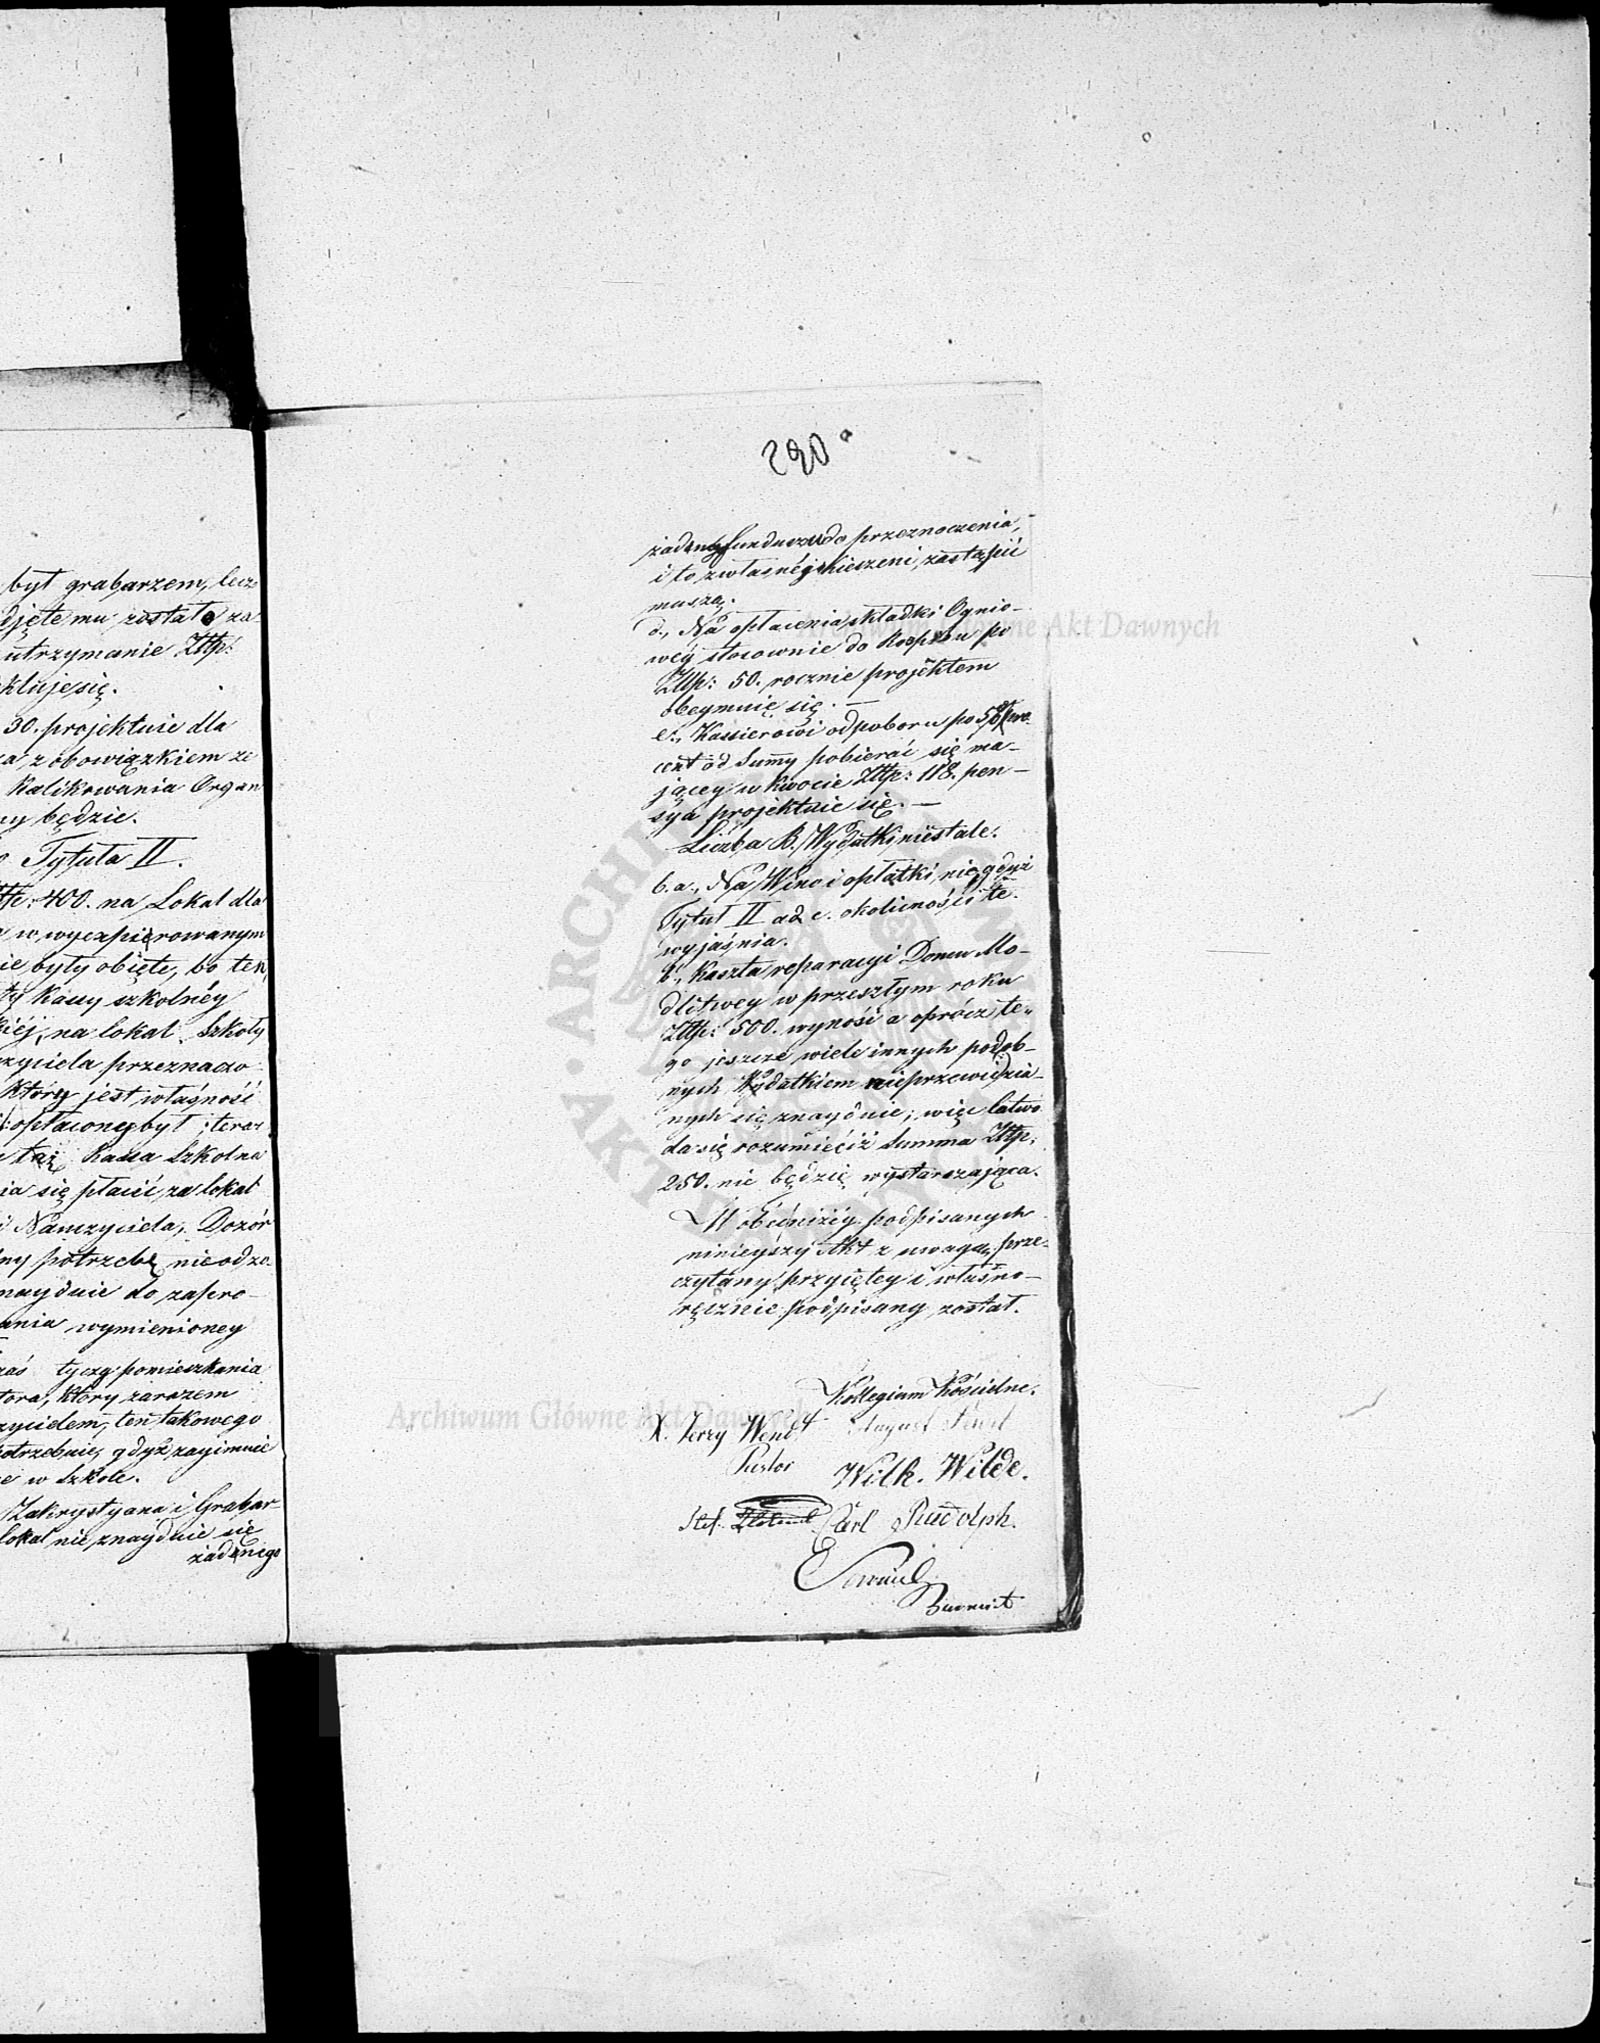 być grabarzem, lecz
djęte mu zostało za
utrzymanie Złtp:
ktuje się.
30. projektuie dla
ca z obowiązkiem ze
Kalikowania Organ
ny będzie.
Tytuła II.
400. na Lokal dla
w wyexpierowanym
ie były obięte, bo ten
ty Kassy szkolnéy
kiéj, na lokal Szkoły
zyciela przeznaczo-
Który jest własność
opłacone był; teraz
taż Kassa Szkolna
ia się płacić za lokal
i Nauczyciela, Dozór
ny potrzebę nieodzo-
nayduie do zapro-
ania wymienioney
zaś tyczy pomieszkania
tora, Który zarazem
zycielem, ten takowego
potrzebuie, gdyż zaymuie
e w Szkole.
Zakrystyana i Grabar-
lokal nie znayduie się
żadnego
290
żadny fundusz do przeznoczenia,
i to z własnéj kieszeni zastąpić
muszą.
d., Na opłacenia składki Ognio-
wéy stosownie do Rozpisu po
Złtp: 50. rocznie projektem
obeymuię się. —
e., Kassierowi od poboru po 5 pro-
cent od Summy pobierać się ma-
jącey w kwocie Złtp: 118. pen-
sya projektuie się. —
Liczba B. Wydatki niestałe.
6. a., Na Wino i opłatki, nie, gdyż
Tytuł II ad c. okoliczność tę
wyjaśnia.
b., Koszta reparacyi Domu Mo-
dlitwey w przeszłym roku
Złtp: 500. wynosi a oprócz te-
go jeszcze wiele innych podob-
nych Wydatkiem nieprzewidzia-
nych się znayduie; więc łatwo
da się rozumieć iż Summa Złtp:
250. nie będzię wystarczająca.
W obec niżéy podpisanych
ninieyszy Akt z uwagą prze-
czytany, przyiętey i własno-
ręcznie podpisany został.
Kollegium Kościelne.
X. Jerzy Wendt August
Pastor Wilh. Wilde.
Stef. Carl Rudolph.
Archiwum Główne Akt Dawnych
Archiwum Główne Akt Dawnych